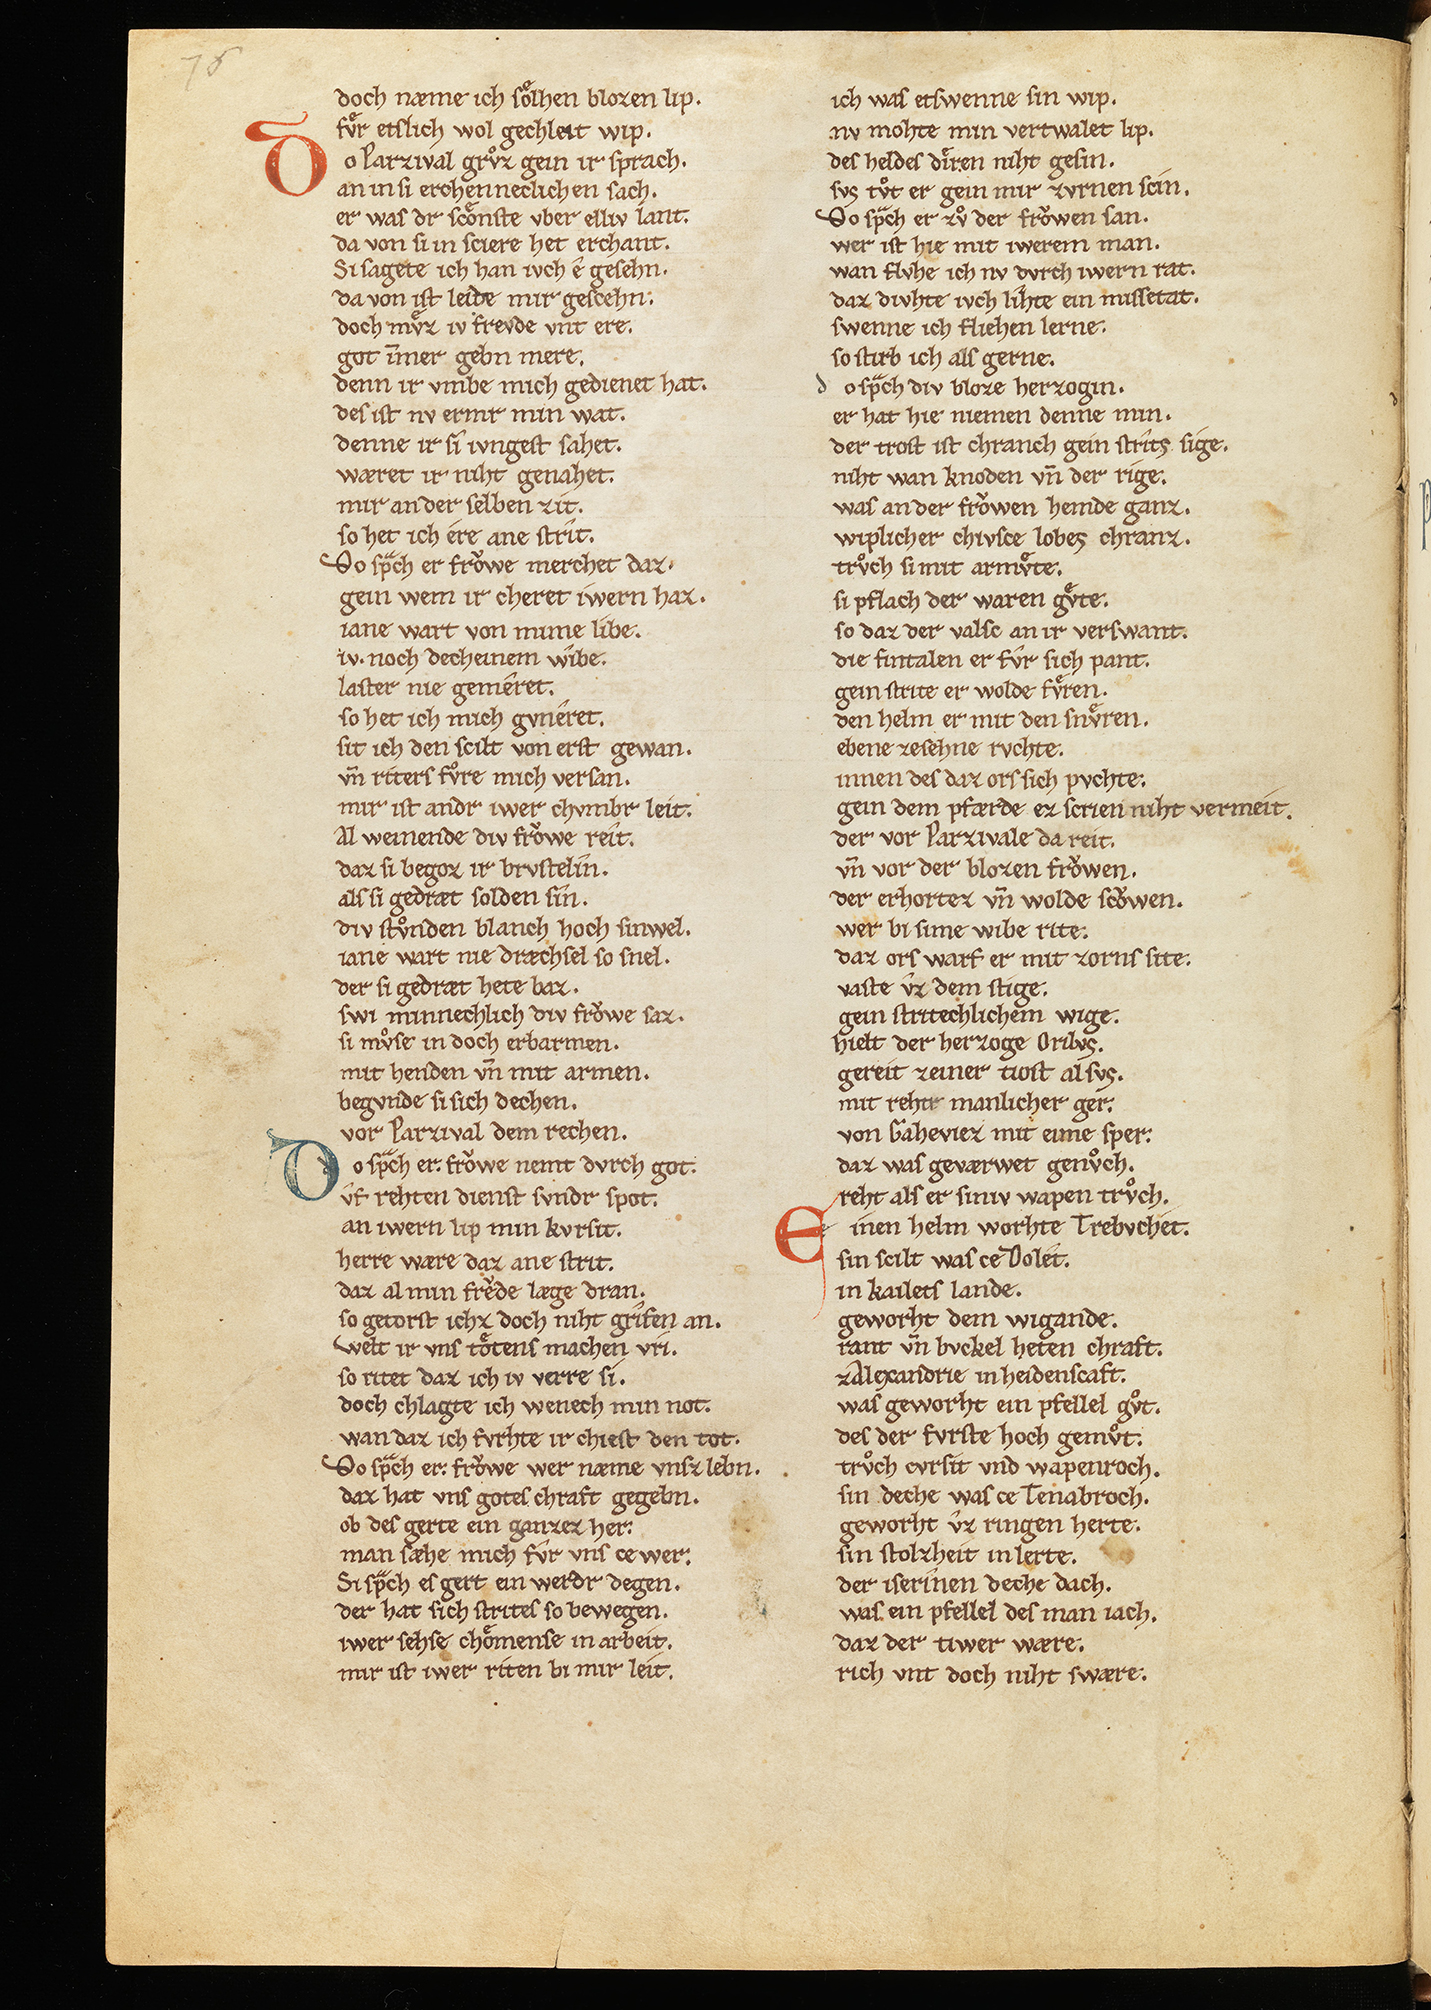 75
doch næme ich soͤlhen blozen lip.
fvͤr etslich wol gechleit wip.
Do Parzival grvͦz gein ir sprach.
an in si erchenneclichen sach.
er was dr scoͤnste vber elliv lant.
da von si in sciere het erchant.
Si sagete ich han ivch ê gesehn.
da von ist leide mir gescehn.
doch mvͤz iv frevde vnt ere.
got im̄er gebn mere.
denn ir vmbe mich gedienet hat.
des ist nv ermr min wat.
denne ir si ivngest sahet.
wæret ir niht genahet.
mir an der selben zit.
so het ich ere ane strit.
Do spᷓch er froͮwe merchet daz.
gein wem ir cheret iwern haz.
iane wart von mime libe.
iv. noch decheinem wîbe.
laster nie gemêret.
so het ich mich gvnêret.
sit ich den scilt von erst gewan.
vn̄ riters fvͦre mich versan.
mir ist andr iwer chvmbr leit.
Al weinende div froͮwe reit.
daz si begoz ir brvstelin.
als si gedræt solden sin.
div stvͦnden blanch hoch sinwel.
iane wart nie dræchsel so snel.
der si gedræt hete baz.
swi minnechlich div froͮwe saz.
si mvͦse in doch erbarmen.
mit henden vn̄ mit armen.
begvnde si sich dechen.
vor Parzival dem rechen.
Do spᷓch er. froͮwe nemt dvrch got.
v̂f rehten dienst svndr spot.
an iwern lip min kvrsit.
herre wære daz ane strit.
daz al min freͮde læge dran.
so getorst ichz doch niht grîfen an.
welt ir vns toͤtens machen vri.
so ritet daz ich iv verre si.
doch chlagte ich wenech min not.
wan daz ich fvrhte ir chiest den tot.
Do spᷓch er. froͮwe wer næme vnsz lebn.
daz hat vns gotes chraft gegebn.
ob des gerte ein ganzez her.
man sæhe mich fv̂r vns ce wer.
Si spᷓch es gert ein werdr degen.
der hat sich strites so bewegen.
iwer sehse choͤmense in arbeit.
mir ist iwer riten bi mir leit.
ich was etswenne sin wip.
nv mohte min vertwalet lip.
des heldes diͤren niht gesin.
svs tvͦt er gein mir zvrnen scin.
Do spᷓch er zvͦ der froͮwen san.
wer ist hie mit iwerem man.
wan flvhe ich nv dvrch iwern rat.
daz divhte ivch lihte ein missetat.
swenne ich fliehen lerne.
so stirb ich als gerne.
do spᷓch div bloze herzogin.
er hat hie niemen denne min.
der trost ist chranch gein strîts sige.
niht wan knoden vn̄ der rige.
was an der froͮwen hemde ganz.
wiplicher chivsce lobes chranz.
trvͦch si mit armvͤte.
si pflach der waren gvͤte.
so daz der valsc an ir verswant.
die fintalen er fv̂r sich pant.
gein strite er wolde fvͤren.
den helm er mit den snvͤren.
ebene zesehne rvchte.
innen des daz ors sich pvchte.
gein dem pfærde ez scrien niht vermeit.
der vor Parzivale da reit.
vn̄ vor der blozen froͮwen.
der erhortez vn̄ wolde scoͮwen.
wer bi sime wibe rite.
daz ors warf er mit zorns site.
vaste v̂z dem stige.
gein stritechlichem wige.
hielt der herzoge Orilvs.
gereit zeiner tiost al svs.
mit rehtr manlicher ger.
von Gaheviez mit eime sper.
daz was geværwet genvͦch.
reht als er siniv wapen trvͦch.
Einen helm worhte Trebvchet.
sin scilt was ce Dolêt.
in kailets lande.
geworht dem wigande.
rant vn̄ bvckel heten chraft.
zAlexandrie in heidenscaft.
was geworht ein pfellel gvͦt.
des der fvrste hoch gemvͦt.
trvͦch cvrsit vnd wapenroch.
sin deche was ce Tenabroch.
geworht v̂z ringen herte.
sin stolzheit in lerte.
der iserînen deche dach.
was ein pfellel des man iach.
daz der tiwer wære.
rich vnt doch niht swære.